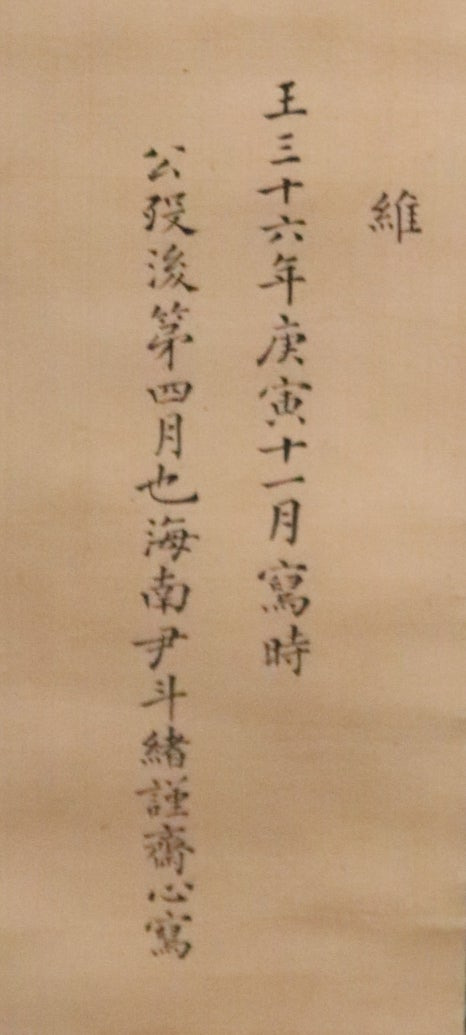 維
王三十六年庚寅十一月寫時
公歿後第四月也海南尹斗緖謹齋心寫